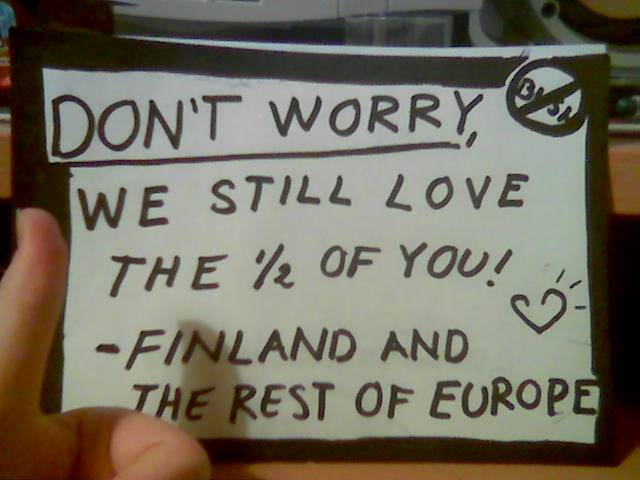 DON'T WORRY,
BUSH
WE STILL LOVE
THE 1/2 OF YOU!
-FINLAND AND
THE REST OF EUROPE